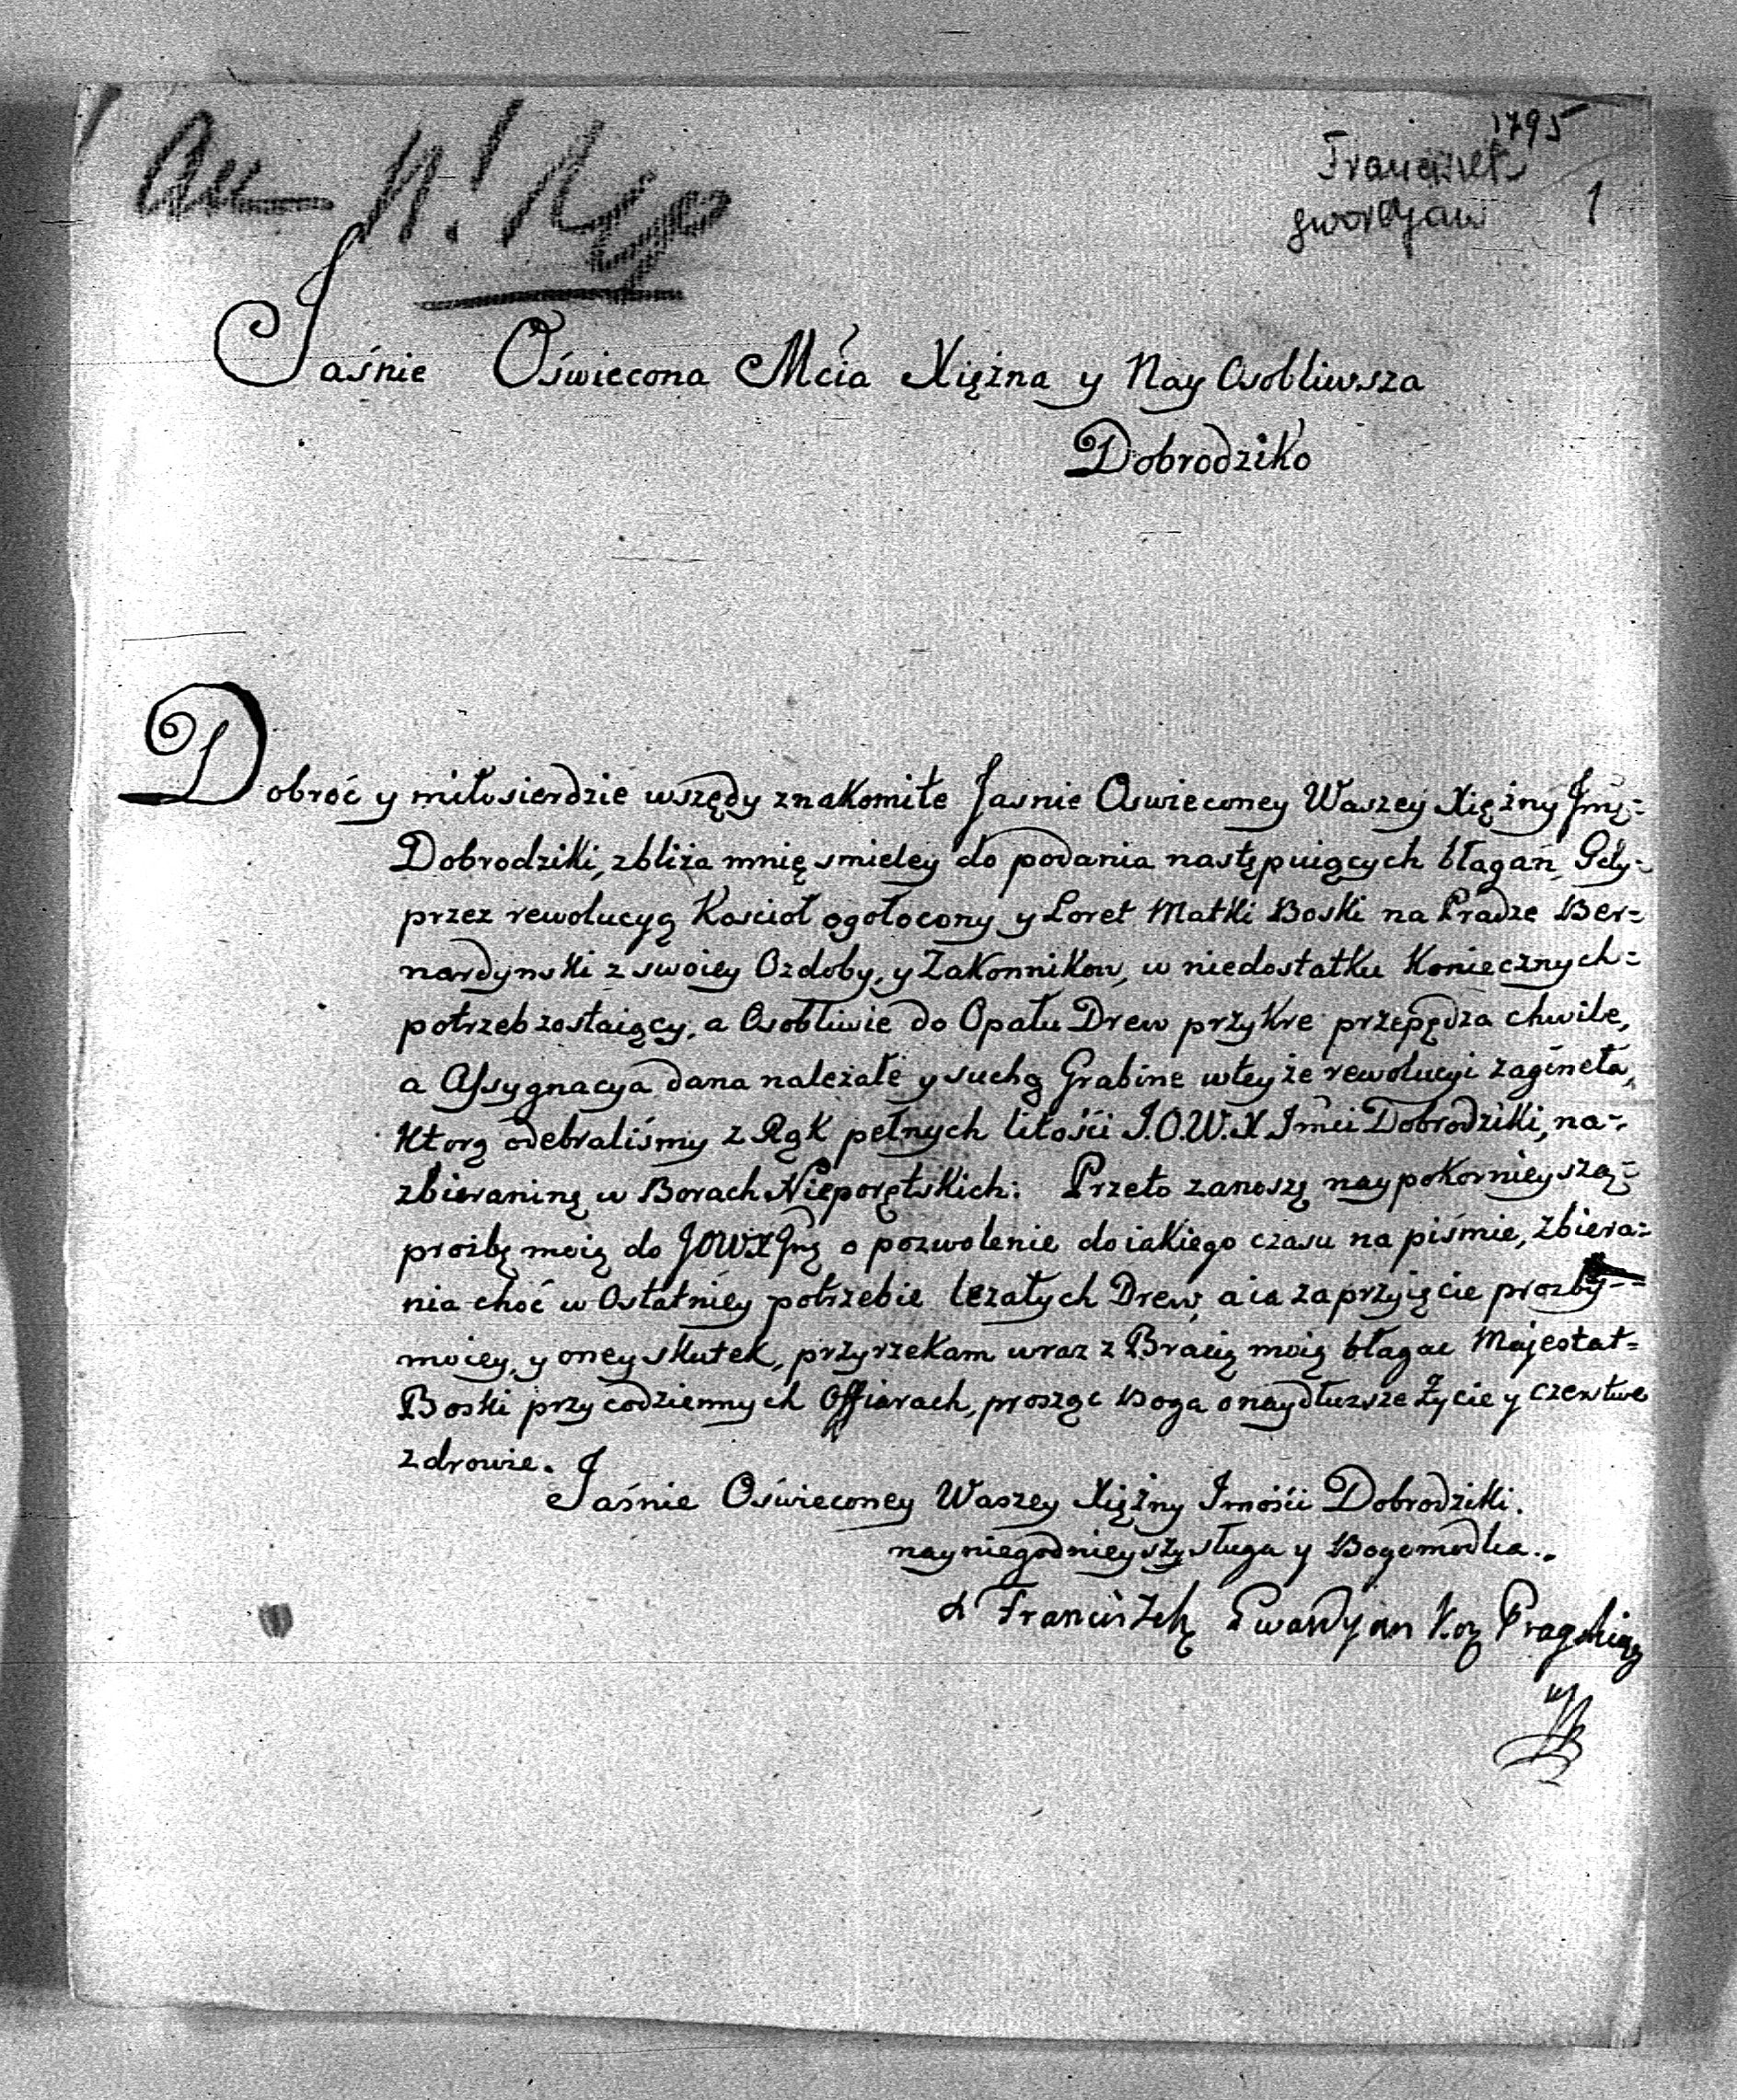 1795
Franciszek
gwardyan 1
Jaśnie Oświecona Mcia Xiężna y Nay Osobliwsza
Dobrodziko
Dobroć y miłosierdzie wszędy znakomite Jasnie Oswieconey Waszey Xiężny Jmę=
Dobrodziki, zbliża mnię smieley do podania następuiących błagań, Gdy=
przez rewolucyą Kościoł ogołocony y Loret Matki Boski na Pradze Ber=
nardynski z swoiey Ozdoby, y Zakonnikow, w niedostatku Koniecznych=
potrzeb zostaiący, a Osobliwie do Opału Drew przykre przepędza chwile,
a Assygnacya dana należałe y suchą Grabine wteyże rewolucyi zagineła,
Ktorą odebraliśmy z Rąk pełnych litości J.O.W.X Jmci Dobrodziki, na=
zbieraninę w Borach Nieporętskich: Przeto zanoszę naypokornieyszą=
proźbę moię do JOWX Jmę o pozwolenie doiakiego czasu na piśmie, zbiera=
nia choć w Ostatniey potrzebie leżałych Drew, a ia zaprzyięcie prozby=
moiey, y oney skutek, przyrzekam wraz z Bracią moią błagac Majestat=
Boski przy codziennych Offiarach, prosząc Boga o naydłuzsze Życie y czerstwe
zdrowie.
Jaśnie Oświeconey Waszey Xiężny Jmości Dobrodziki.
nayniegodnieyszy sługa y Bogomodlca..
Franciszek Gwardyan Praski